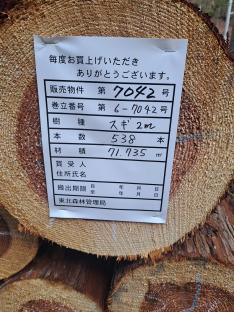 毎度お買上げいただき
ありがとうございます。
販売物件 第 7042 号
巻立番号 第 6-7042 号
樹種 スギ 2m
本数 538 本
材積 71.735 ㎥
買受人
住所氏名
搬出期限 自 年 月 日
至 年 月 日
東北森林管理局